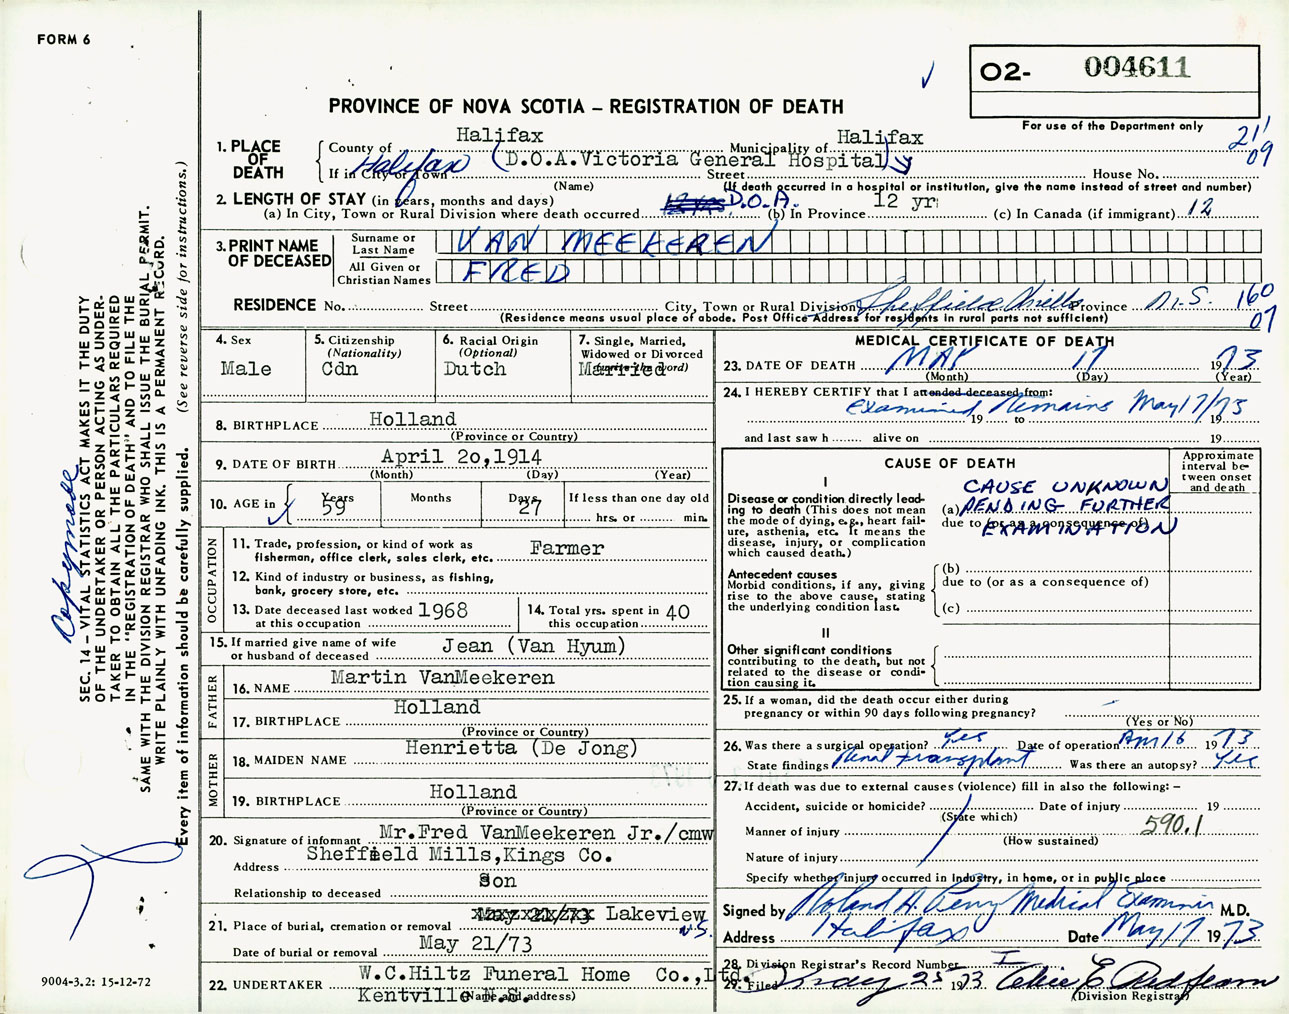 FORM 6
O2- 004611
PROVINCE OF NOVA SCOTIA – REGISTRATION OF DEATH
For use of the Department only
211
09
1. PLACE OF DEATH
County of Halifax Municipality of Halifax
If in City or Town Halifax (D.O.A. Victoria General Hospital) Street House No.
(Name) (If death occurred in a hospital or institution, give the name instead of street and number)
2. LENGTH OF STAY (in years, months and days)
(a) In City, Town or Rural Division where death occurred D.O.A. (b) In Province 12 yr (c) In Canada (if immigrant) 12
3. PRINT NAME OF DECEASED
Surname or Last Name VAN MEEKEREN
All Given or Christian Names FRED
RESIDENCE No. Street City, Town or Rural Division Sheffield Mills Province N.S. 160
07
(Residence means usual place of abode. Post Office Address for residents in rural parts not sufficient)
4. Sex Male
5. Citizenship (Nationality) Cdn
6. Racial Origin (Optional) Dutch
7. Single, Married, Widowed or Divorced (write the word) Married
8. BIRTHPLACE Holland
(Province or Country)
9. DATE OF BIRTH April 20,1914
(Month) (Day) (Year)
10. AGE in Years 59 Months Days 27 If less than one day old
hrs. or min.
OCCUPATION
11. Trade, profession, or kind of work as fisherman, office clerk, sales clerk, etc. Farmer
12. Kind of industry or business, as fishing, bank, grocery store, etc.
13. Date deceased last worked at this occupation 1968
14. Total yrs. spent in this occupation 40
15. If married give name of wife or husband of deceased Jean (Van Hyum)
FATHER
16. NAME Martin VanMeekeren
17. BIRTHPLACE Holland
(Province or Country)
MOTHER
18. MAIDEN NAME Henrietta (De Jong)
19. BIRTHPLACE Holland
(Province or Country)
20. Signature of informant Mr.Fred VanMeekeren Jr./cmw
Address Sheffield Mills,Kings Co.
Relationship to deceased Son
21. Place of burial, cremation or removal May 21/73 Lakeview N.S.
Date of burial or removal May 21/73
22. UNDERTAKER W.C.Hiltz Funeral Home Co.,Ltd.
Kentville N.S.
(Name and address)
MEDICAL CERTIFICATE OF DEATH
23. DATE OF DEATH MAY 17 1973
(Month) (Day) (Year)
24. I HEREBY CERTIFY that I attended deceased from:
Examined Remains May 17/73
19 to 19
and last saw h alive on 19
CAUSE OF DEATH
Approximate interval between onset and death
I
Disease or condition directly leading to death (This does not mean the mode of dying, e.g., heart failure, asthenia, etc. It means the disease, injury, or complication which caused death.)
(a) CAUSE UNKNOWN
PENDING FURTHER
EXAMINATION
due to (or as a consequence of)
Antecedent causes
Morbid conditions, if any, giving rise to the above cause, stating the underlying condition last.
(b)
due to (or as a consequence of)
(c)
II
Other significant conditions contributing to the death, but not related to the disease or condition causing it.
25. If a woman, did the death occur either during pregnancy or within 90 days following pregnancy?
(Yes or No)
26. Was there a surgical operation? Yes Date of operation Apr 16 1973
State findings Renal transplant Was there an autopsy? Yes
27. If death was due to external causes (violence) fill in also the following: –
Accident, suicide or homicide? Date of injury 19
(State which)
Manner of injury 590.1
(How sustained)
Nature of injury
Specify whether injury occurred in industry, in home, or in public place
Signed by Roland A. Perry Medical Examiner M.D.
Address Halifax Date May 17 1973
28. Division Registrar's Record Number I
29. Filed May 25 1973 E. Redfearn
(Division Registrar)
Copy made
SEC. 14 – VITAL STATISTICS ACT MAKES IT THE DUTY
OF THE UNDERTAKER OR PERSON ACTING AS UNDER-
TAKER TO OBTAIN ALL THE PARTICULARS REQUIRED
IN THE "REGISTRATION OF DEATH" AND TO FILE THE
SAME WITH THE DIVISION REGISTRAR WHO SHALL ISSUE THE BURIAL PERMIT.
WRITE PLAINLY WITH UNFADING INK. THIS IS A PERMANENT RECORD.
Every item of information should be carefully supplied. (See reverse side for instructions.)
9004-3.2: 15-12-72